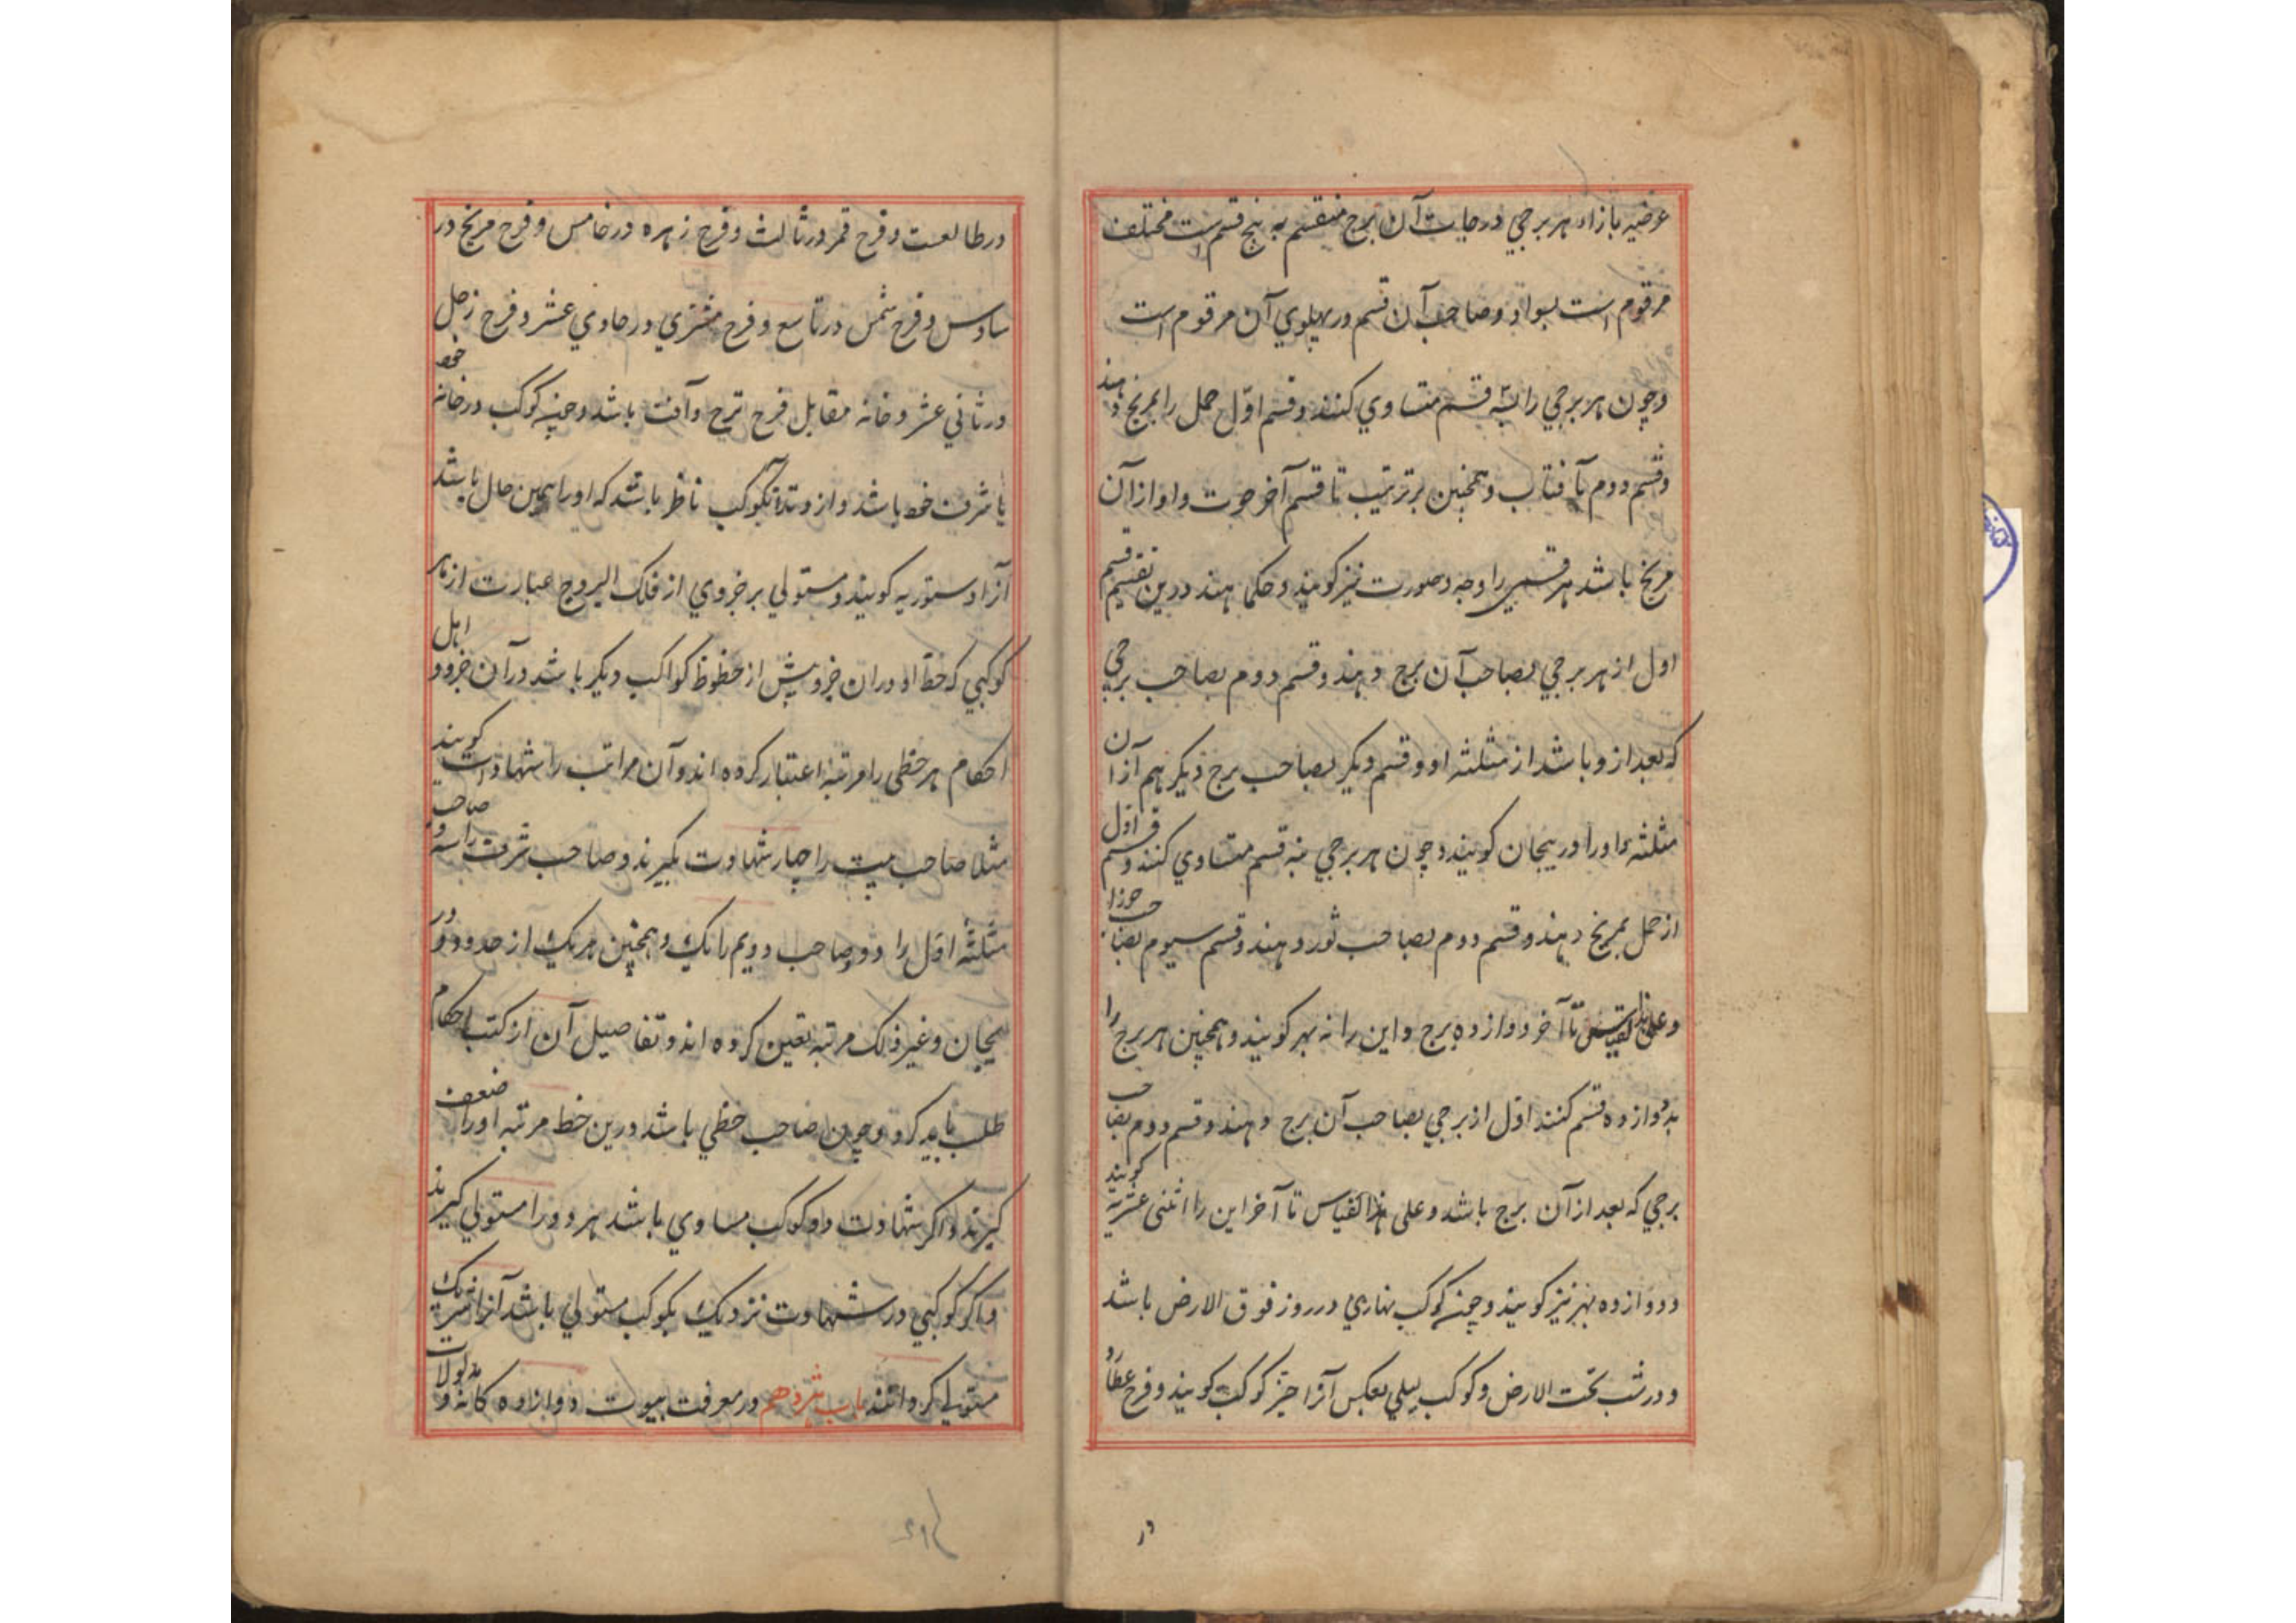 عرضیه بازاء هر برجی درجات آن برج منقسم به پنج قسم است مختلف
مرقوم است بسواد و صاحب آن قسم در پهلوی آن مرقوم است
و چون هر برجی را بسه قسم متساوی کنند و قسم اوّل حمل را بمریخ دهند
و قسم دوم بآفتاب و همچنین بر ترتیب تا قسم آخر حوت و او از آن
مریخ باشد هر قسمی را وجه و صورت نیز گویند و حکما هند درین تقسیم قسم
اول از هر برجی بصاحب آن برج دهند و قسم دوم بصاحب برجی
که بعد از و باشد از مثلثه او و قسم دیگر بصاحب برج دیگر هم از آن
مثلثه و اورا دریجان گویند و چون هر برجی بنه قسم متساوی کنند و قسم اوّل
از حمل بمریخ دهند و قسم دوم بصاحب ثور دهند و قسم سیوم بصاحب جوزا
و علی هذا القیاس تا آخر دوازده برج و این را نه بهر گویند و همچنین هر برج را
بدوازده قسم کنند اوّل از برجی بصاحب آن برج دهند و قسم دوم بصاحب
برجی که بعد از آن برج باشد و علی هذا القیاس تا آخر این را اثنی عشریه گویند
و دوازده بهر نیز گویند و چون کوکب نهاری در روز فوق الارض باشد
و در شب تحت الارض و کوکب لیلی بعکس آنرا حیّز کوکب گویند و فرح عطارد
در
در طالعست و فرح قمر در ثالث و فرح زهره در خامس و فرح مریخ در
سادس و فرح شمس در تاسع و فرح مشتری در حادی عشر و فرح زحل
در ثانی عشر و خانه مقابل فرح ترح و آفت باشد و چون کوکب در خانه خود
یا شرف خود باشد و از وتد بکوکب ناظر باشد که او را همین حال باشد
آنرا دستوریه گویند و مستولی بر جزوی از فلک البروج عبارت از هر
کوکبی که حظ او در ان جزو بیش از حظوظ کواکب دیگر باشد در آن جزو و اهل
احکام هر حظی را مرتبهٔ اعتبار کرده اند و آن مراتب را شهادت گویند
مثلا صاحب بیت را چهار شهادت گیرند و صاحب شرف را سه و صاحب
مثلثه اوّل را دو و صاحب دویم را یک و همچنین هر یک از حدود و در
یجان و غیر ذلک مرتبه تعین کرده اند و تفاصیل آن از کتب احکام
طلب باید کرد و چون صاحب حظی باشد درین حظ مرتبه او را ضعف
گیرند و اگر شهادت دو کوکب مساوی باشد هر دو را مستولی گیرند
و اگر کوکبی در شهادت نزدیک بکوکب مستولی باشد آنرا شریک
مستولی گردانند باب شزدهم در معرفت بیوت دوازده کانه و مدلولات